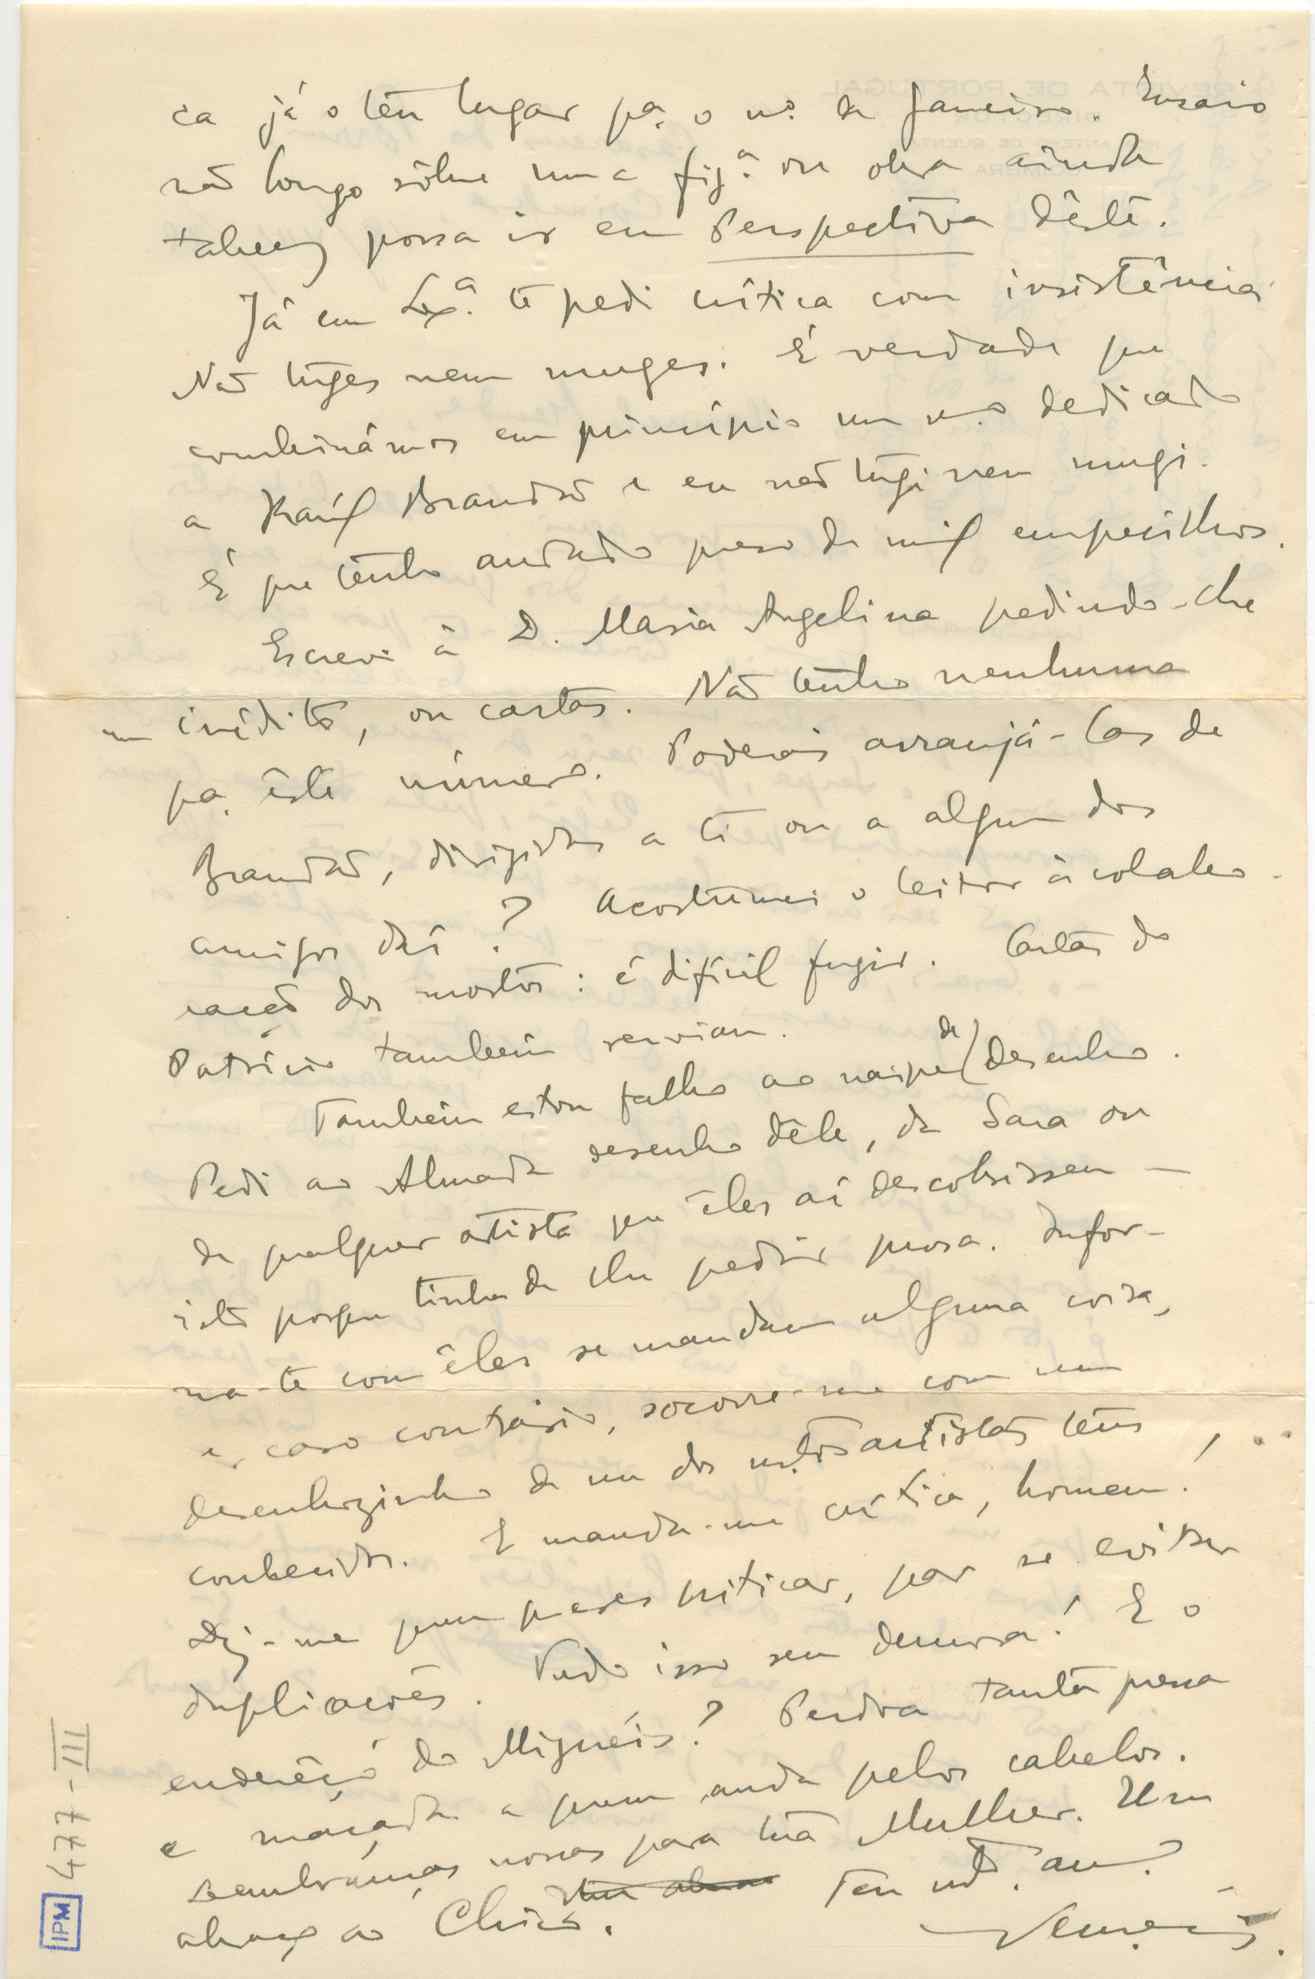 ca já o teu lugar pa. o nº. de Janeiro. Ensaio
não longo sôbre uma figª. ou obra ainda
talvez possa ir em Perspectiva dêste.
Já em Lxª. te pedi crítica com insistência.
Não tuges nem muges. É verdade que
combinámos em princípio um nº dedicado
a Raúl Brandão e eu não tugi nem mugi.
É que tenho andado preso de mil empecilhos.
Escrevi à D. Maria Angelina pedindo-lhe
um inédito, ou cartas. Não tenho nenhuma
pa. êste número. Poderás arranjá-las de
Brandão, dirigidas a ti ou a algum dos
amigos daí? Acostumei o leitor à colabo-
ração dos mortos: é difícil fugir. Cartas do
Patrício também serviam.
Também estou falho ao naipe de desenho.
Pedi ao Almada desenho dêle, da Sara ou
de qualquer artista que êles aí descobrissem —
isto porque tinha de lhe pedir prosa. Infor-
ma-te com êles se mandam alguma coisa,
e, caso contrário, socorre-me com um
desenhozinho de um dos mtos artistas teus
conhecidos. E manda-me crítica, homem!
Diz-me quem queres criticar, par se evitar
duplicações. Tudo isso sem demora! E o
enderêço do Miguéis? Perdoa tanta pressa
e maçada a quem anda pelos cabelos.
Lembranças nossas para tua Mulher. Um
abraço ao Chico. Teu mtº. amº.
Nemésio.
IPM 477-III